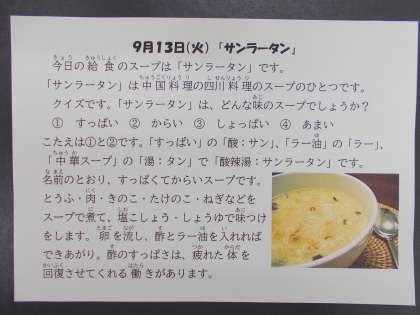 9月13日(火) 「サンラータン」
今日の給食のスープは「サンラータン」です。
「サンラータン」は中国料理の四川料理のスープのひとつです。
クイズです。「サンラータン」は、どんな味のスープでしょうか?
① すっぱい ② からい ③ しょっぱい ④ あまい
こたえは①と②です。「すっぱい」の「酸:サン」、「ラー油」の「ラー」、
「中華スープ」の「湯:タン」で「酸辣湯:サンラータン」です。
名前のとおり、すっぱくてからいスープです。
とうふ・肉・きのこ・たけのこ・ねぎなどを
スープで煮て、塩こしょう・しょうゆで味つけ
をします。卵を流し、酢とラー油を入れれば
できあがり。酢のすっぱさは、疲れた体を
回復させてくれる働きがあります。